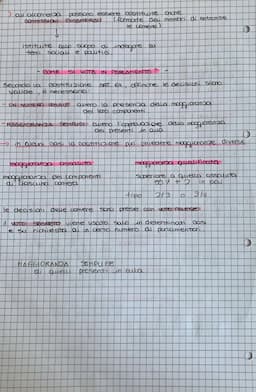 ) all'occorrenza possono essere costituite anche
commissioni bicamerali (formate dai membri di entrambe
le camere)
istituite allo scopo di indagare su
temi sociali e politici.
- COME SI VOTA IN PARLAMENTO? -
Secondo la costituzione art. 64, affinché le decisioni siano
valide, è necessario:
- un NUMERO LEGALE ovvero la presenza della maggioranza
dei loro componenti.
- MAGGIORANZA SEMPLICE ovvero l'approvazione della maggioranza
dei presenti in aula.
→ in alcuni casi la costituzione può prevedere maggioranze diverse
maggioranza assoluta maggioranza qualificata
maggioranza dei componenti superiore a quella assoluta
di ciascuna camera 50% + 1 in poi
tipo 2/3 o 3/4
le decisioni delle camere sono prese con voto palese
il voto segreto viene usato solo in determinati casi
e su richiesta di un certo numero di parlamentari.
MAGGIORANZA SEMPLICE
di quelli presenti in aula